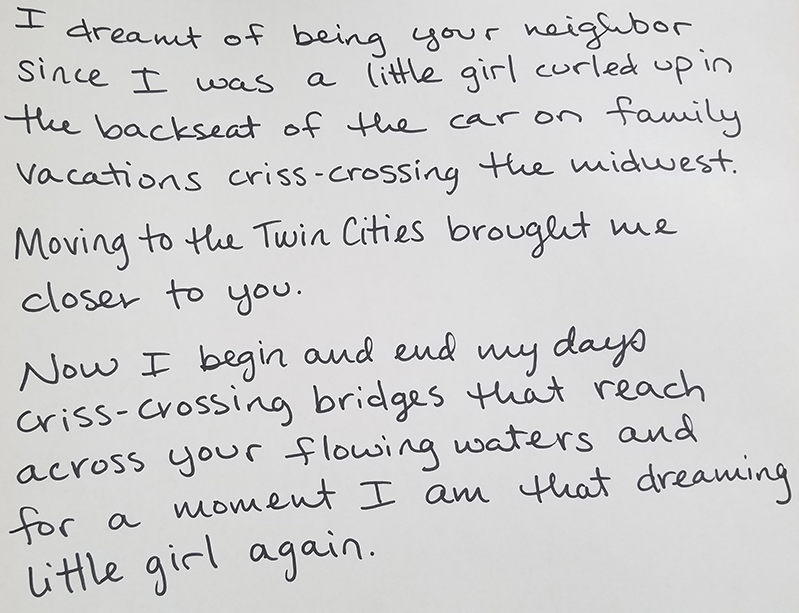 I dreamt of being your neighbor
since I was a little girl curled up in
the backseat of the car on family
vacations criss-crossing the midwest.
Moving to the Twin Cities brought me
closer to you.
Now I begin and end my days
criss-crossing bridges that reach
across your flowing waters and
for a moment I am that dreaming
little girl again.